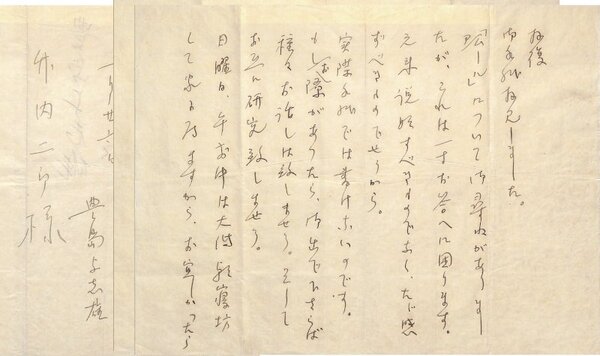 拝復
御手紙拝見しました。
について御尋ねがありまし
たが、これは一寸お答へに困ります。
元来説明すべきものでなく、ただ感
ずべきものでせうから。
実際手紙では書けないのです。
もしお際があつたら、御出で下さらば
種々お話しは致しませう。そして
お互に研究致しませう。
日曜日、午前中は大抵朝寝坊
して家に居ますから、お宜しかつたら
豊島与志雄
竹内二郎様